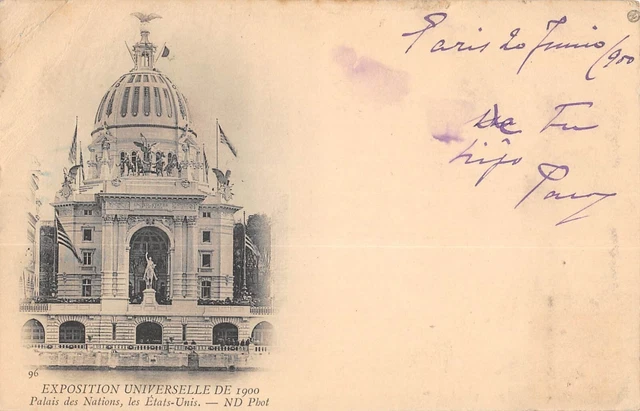 Paris 20 Junio/900
De Tu
hijo
96
EXPOSITION UNIVERSELLE DE 1900
Palais des Nations, les États-Unis. — ND Phot